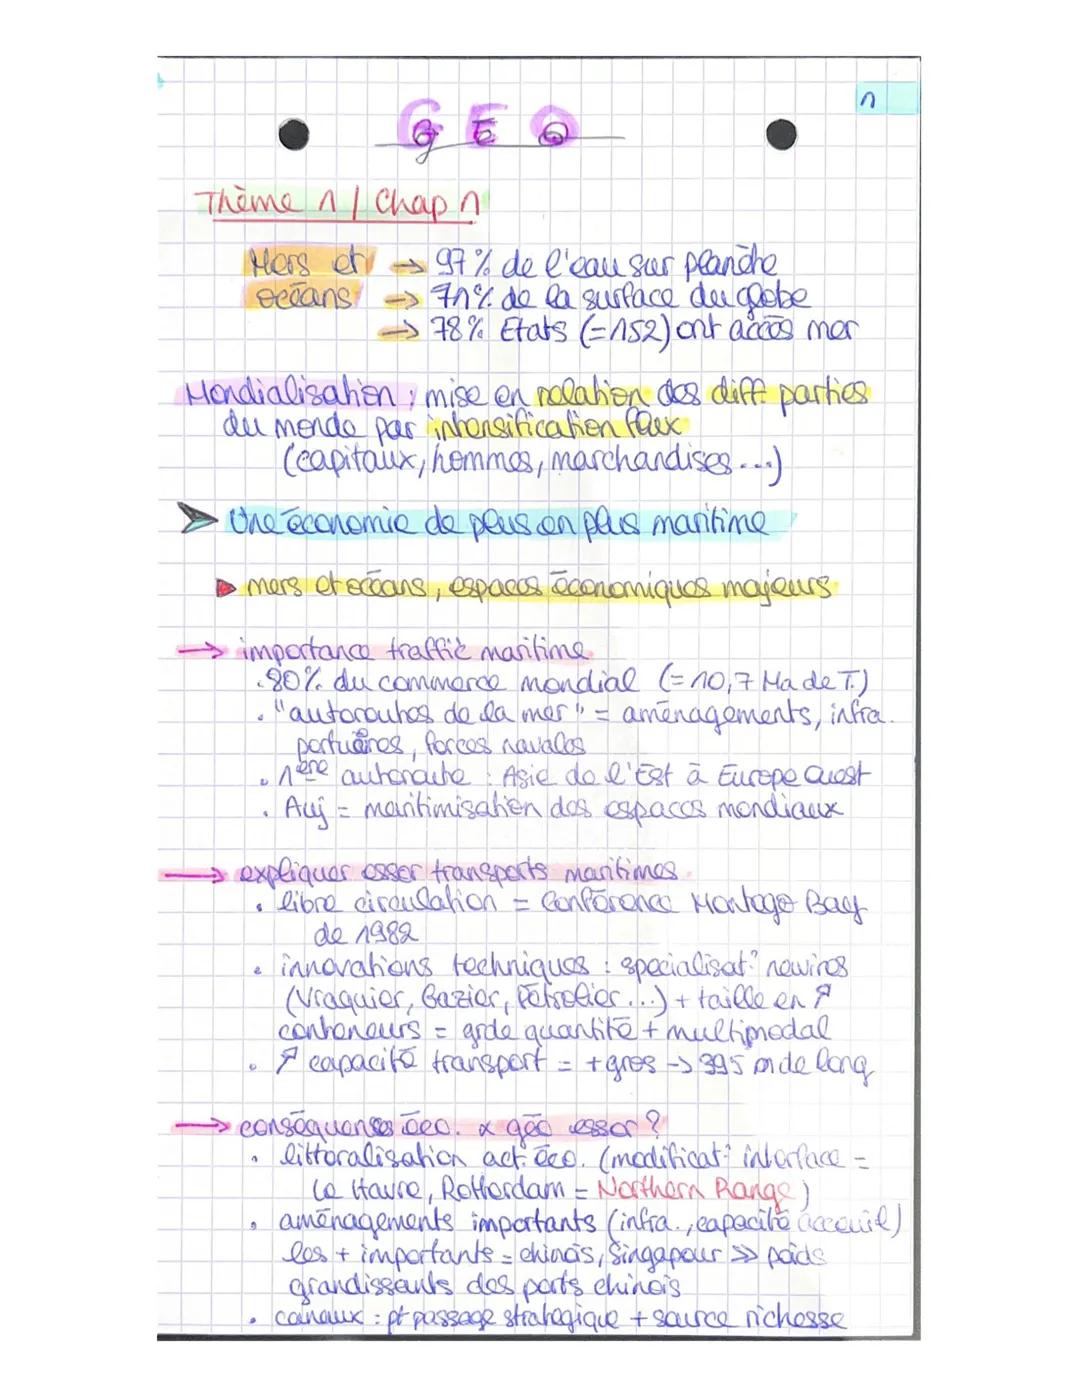 1
GEO
Thème 1 / Chap 1
Mers et → 97% de l'eau sur planète
océans → 71% de la surface du globe
→ 78% États (=152) ont accès mer
Mondialisation : mise en relation des diff parties
du monde par intensification flux
(capitaux, hommes, marchandises...)
➤ Une économie de plus en plus maritime
▶ mers et océans, espaces économiques majeurs
→ importance traffic maritime
. 80% du commerce mondial (= 10,7 Ma de T.)
. "autoroutes de la mer" = aménagements, infra.
portuaires, forces navales
. 1ère autoroute : Asie de l'Est à Europe Ouest
. Auj = maritimisation des espaces mondiaux
→ expliquer essor transports maritimes
. libre circulation = Conférence Montego Bay
de 1982
. innovations techniques : spécialisat° navires
(Vraquier, Gazier, Pétrolier...) + taille en ↗
conteneurs = grde quantité + multimodal
. ↗ capacité transport = + gros -> 395 m de long
→ conséquences éco. & géo essor ?
. littoralisation act. éco. (modificat° interface =
Le Havre, Rotterdam = Northern Range)
. aménagements importants (infra., capacité acceuil)
les + importants = chinois, Singapour >> poids
grandissants des ports chinois
. canaux : pt passage stratégique + source richesse